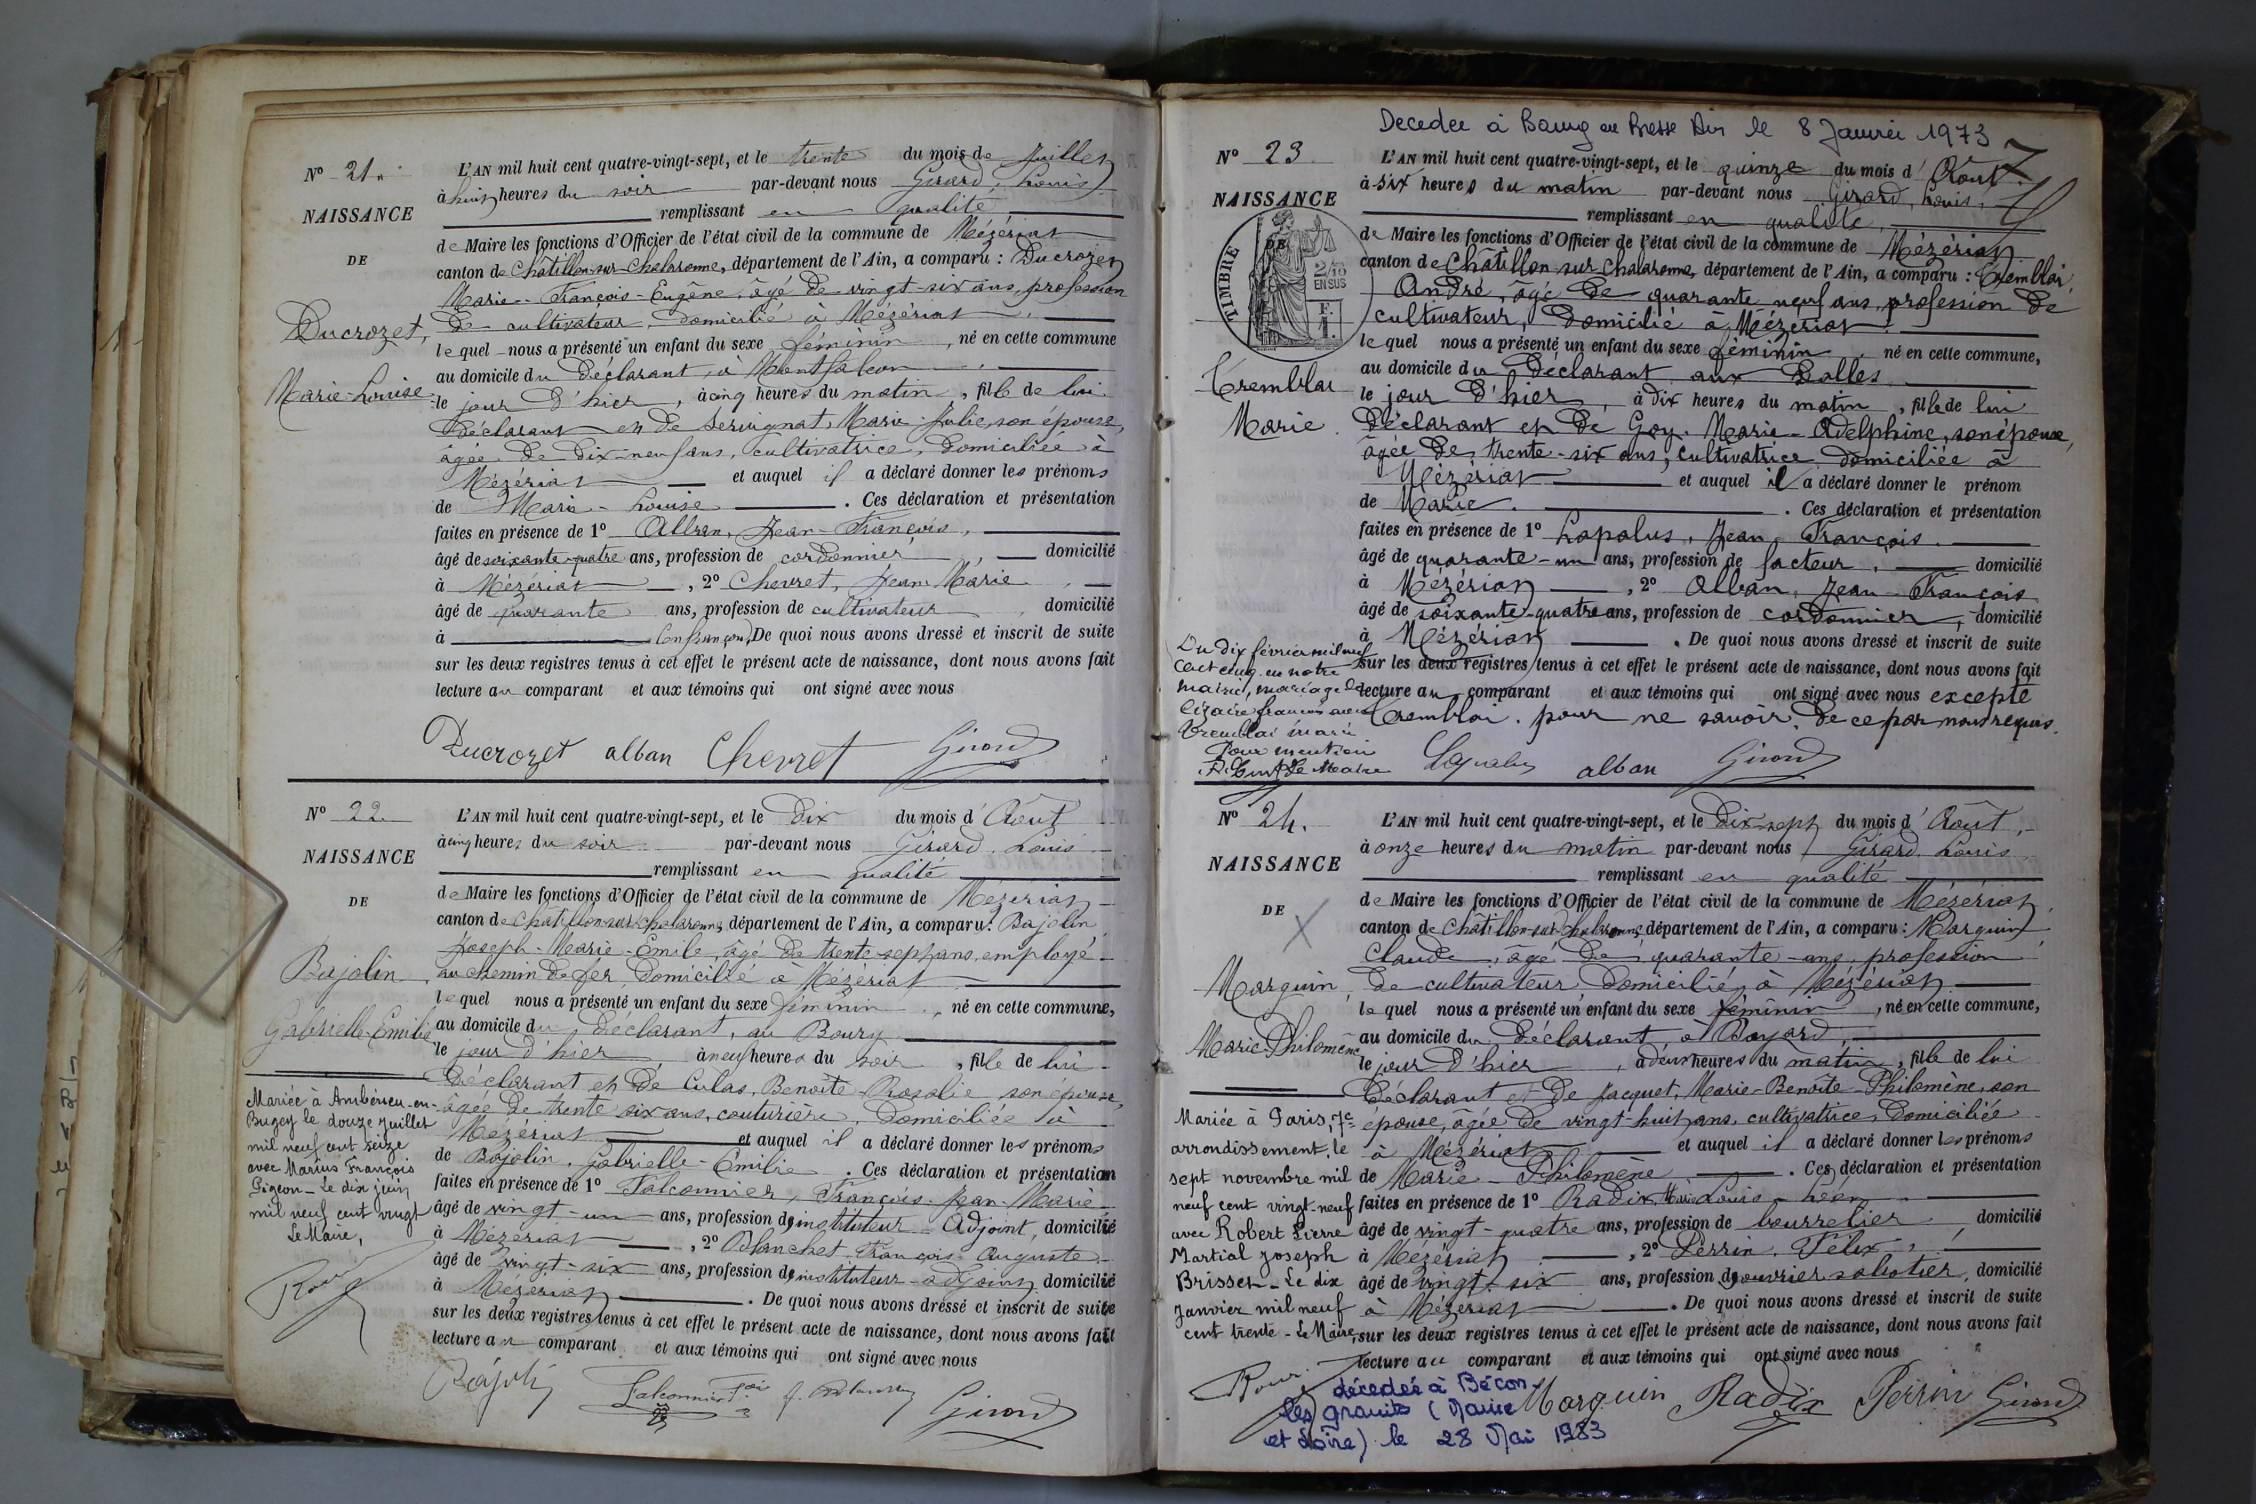 N° 21.
NAISSANCE
DE
Ducrozet,
Marie-Louise
L'AN mil huit cent quatre-vingt-sept, et le trente du mois de Juillet
à huit heures du soir par-devant nous Girard, Louis,
remplissant en qualité
de Maire les fonctions d'Officier de l'état civil de la commune de Mézériat
canton de Châtillon-sur-Chalaronne, département de l'Ain, a comparu : Ducrozet
Marie-François-Eugène, âgé de vingt-six ans, profession
de cultivateur, domicilié à Mézériat,
lequel nous a présenté un enfant du sexe féminin, né en cette commune
au domicile du déclarant, à Montfalcon,
le jour d'hier, à cinq heures du matin, fille de lui
déclarant et de Servignat, Marie-Julie, son épouse,
âgée de dix-neuf ans, cultivatrice, domiciliée à
Mézériat et auquel il a déclaré donner les prénoms
de Marie-Louise. Ces déclaration et présentation
faites en présence de 1° Alban, Jean-François,
âgé de soixante-quatre ans, profession de cordonnier, domicilié
à Mézériat, 2° Chevret, Jean Marie,
âgé de quarante ans, profession de cultivateur, domicilié
à Confrançon. De quoi nous avons dressé et inscrit de suite
sur les deux registres tenus à cet effet le présent acte de naissance, dont nous avons fait
lecture au comparant et aux témoins qui ont signé avec nous
Ducrozet alban Chevret Girard
N° 22.
NAISSANCE
DE
Bajolin
Gabrielle-Emilie
Mariée à Ambérieu-en-
Bugey le douze juillet
mil neuf cent seize
avec Marius François
Pigeon - Le dix juin
mil neuf cent vingt
Le Maire,
L'AN mil huit cent quatre-vingt-sept, et le dix du mois d'Août
à cinq heures du soir par-devant nous Girard, Louis
remplissant en qualité
de Maire les fonctions d'Officier de l'état civil de la commune de Mézériat
canton de Châtillon-sur-Chalaronne, département de l'Ain, a comparu : Bajolin
Joseph-Marie-Emile, âgé de trente-sept ans, employé
au chemin de fer, domicilié à Mézériat
lequel nous a présenté un enfant du sexe féminin, né en cette commune,
au domicile du déclarant, au Bourg
le jour d'hier à neuf heures du soir, fille de lui
déclarant et de Culas, Benoîte-Rosalie son épouse,
âgée de trente six ans, couturière, domiciliée à
Mézériat et auquel il a déclaré donner les prénoms
de Bajolin, Gabrielle-Emilie. Ces déclaration et présentation
faites en présence de 1° Falconnier, François-Jean-Marie
âgé de vingt-un ans, profession d'instituteur-Adjoint, domicilié
à Mézériat, 2° Blanchet, François Auguste
âgé de vingt-six ans, profession d'instituteur-adjoint, domicilié
à Mézériat. De quoi nous avons dressé et inscrit de suite
sur les deux registres tenus à cet effet le présent acte de naissance, dont nous avons fait
lecture au comparant et aux témoins qui ont signé avec nous
Falconnier Girard
Decedee à Bourg en Bresse Ain le 8 Janvier 1973
N° 23
NAISSANCE
DE
TIMBRE
2/10
EN SUS
Tremblai
Marie
L'AN mil huit cent quatre-vingt-sept, et le quinze du mois d'Août
à six heures du matin par-devant nous Girard, Louis,
remplissant en qualité,
de Maire les fonctions d'Officier de l'état civil de la commune de Mézériat
canton de Châtillon sur Chalaronne, département de l'Ain, a comparu : Tremblai,
André, âgé de quarante neuf ans, profession de
cultivateur, domicilié à Mézériat,
lequel nous a présenté un enfant du sexe féminin, né en cette commune,
au domicile du déclarant aux
le jour d'hier, à dix heures du matin, fille de lui
déclarant et de Goy, Marie-Adelphine, son épouse,
âgée de trente-six ans, cultivatrice domiciliée à
Mézériat et auquel il a déclaré donner le prénom
de Marie. Ces déclaration et présentation
faites en présence de 1° Lapalus, Jean, François.
âgé de quarante-un ans, profession de facteur, domicilié
à Mézériat, 2° Alban, Jean-François
âgé de soixante-quatre ans, profession de cordonnier, domicilié
à Mézériat. De quoi nous avons dressé et inscrit de suite
sur les deux registres tenus à cet effet le présent acte de naissance, dont nous avons fait
lecture au comparant et aux témoins qui ont signé avec nous excepté
Tremblai, pour ne savoir, de ce par nous requis.
Du dix février mil neuf
cent cinq en notre
mairie, mariage de
Lizaire françois avec
Tremblai marie
Pour mention
Le Maire
Lapalus alban Girard
N° 24.
NAISSANCE
DE
Marguin,
Marie-Philomène
Mariée à Paris, 7e
arrondissement, le
sept novembre mil
neuf cent vingt-neuf
avec Robert Pierre
Martial Joseph
Brisset - Le dix
Janvier mil neuf
cent trente - Le Maire,
L'AN mil huit cent quatre-vingt-sept, et le dix-sept du mois d'Août,
à onze heures du matin par-devant nous Girard, Louis
remplissant en qualité
de Maire les fonctions d'Officier de l'état civil de la commune de Mézériat
canton de Châtillon-sur-Chalaronne, département de l'Ain, a comparu : Marguin
Claude, âgé de quarante-ans, profession
de cultivateur domicilié, à Mézériat
lequel nous a présenté un enfant du sexe féminin, né en cette commune,
au domicile du déclarant, à Bayard,
le jour d'hier, à deux heures du matin, fille de lui
déclarant et de Jacquet, Marie-Benoîte-Philomène, son
épouse, âgée de vingt-huit ans, cultivatrice, domiciliée
à Mézériat et auquel il a déclaré donner les prénoms
de Marie-Philomène. Ces déclaration et présentation
faites en présence de 1° Radix, Marie Louis-Léon
âgé de vingt-quatre ans, profession de bourrelier, domicilié
à Mézériat, 2° Perrin, Félix,
âgé de vingt-six ans, profession d'ouvrier sabotier, domicilié
à Mézériat. De quoi nous avons dressé et inscrit de suite
sur les deux registres tenus à cet effet le présent acte de naissance, dont nous avons fait
lecture au comparant et aux témoins qui ont signé avec nous
Marguin Radix Perrin Girard
décedée à Bécon
les granits (Maine
et Loire) le 28 Mai 1983